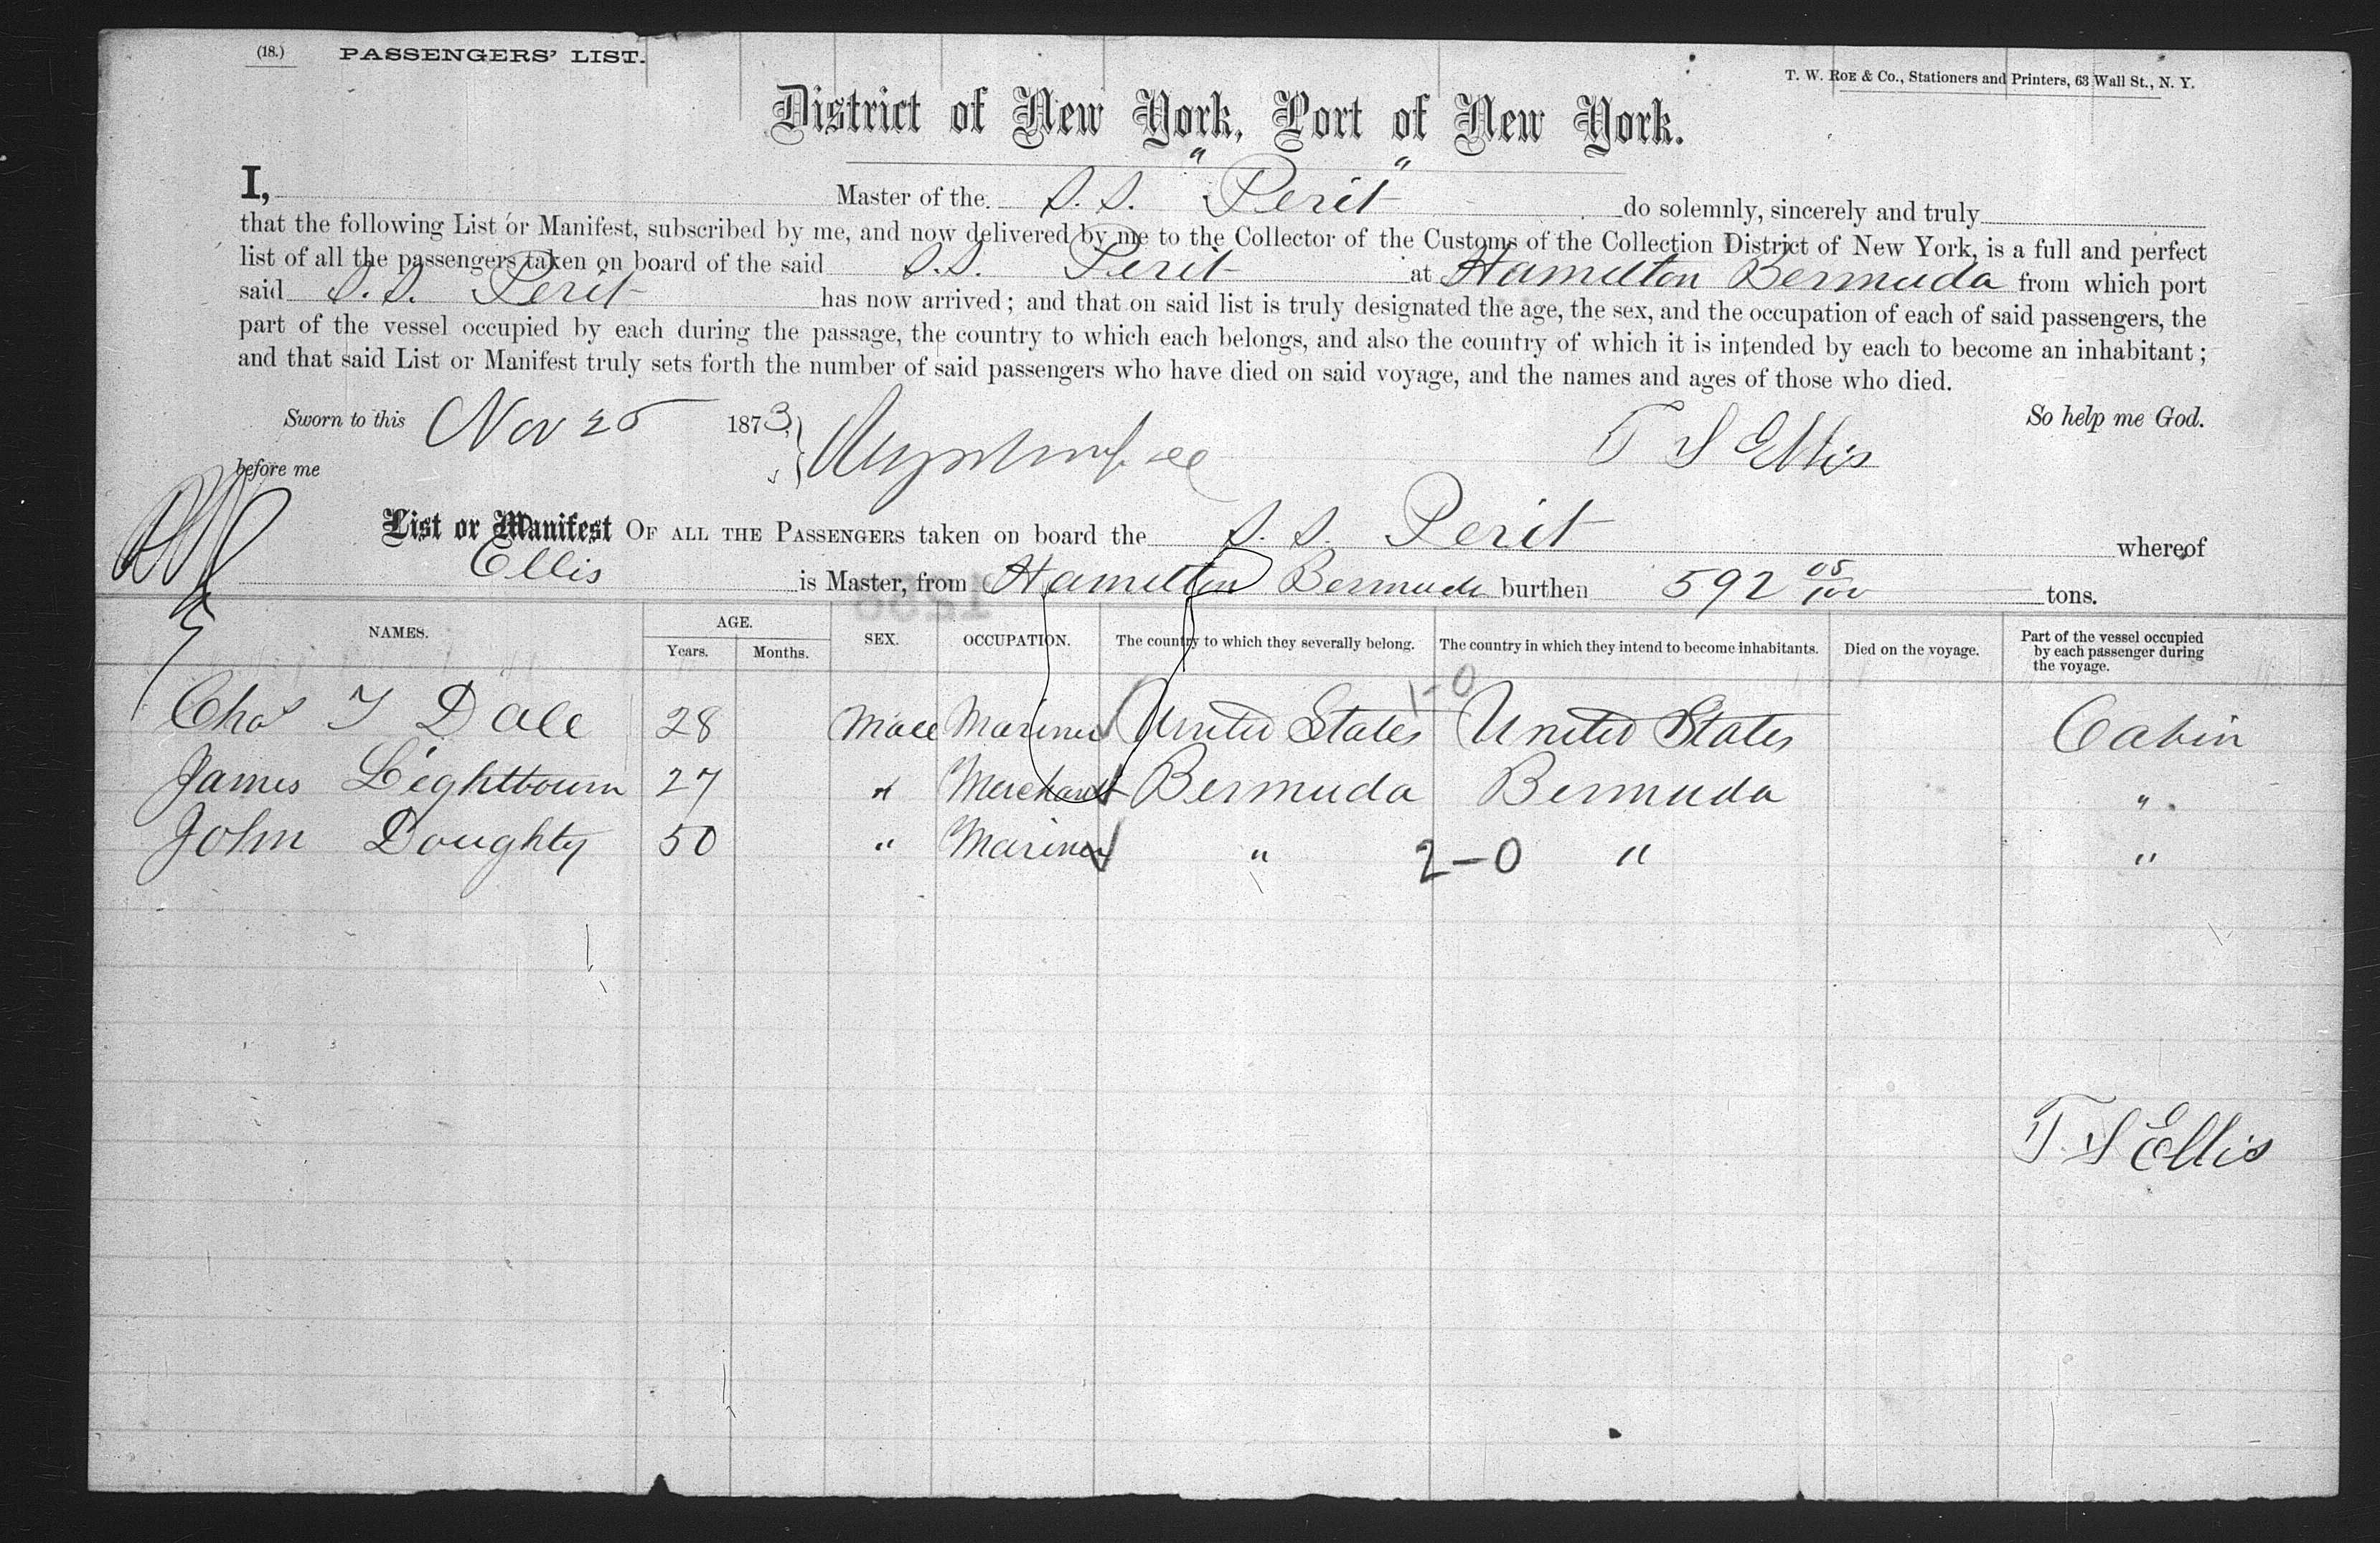 (18.) PASSENGERS' LIST.
T. W. ROE & Co., Stationers and Printers, 63 Wall St., N. Y.
District of New York, Port of New York.
I, Master of the S.S. "Perit" do solemnly, sincerely and truly
that the following List or Manifest, subscribed by me, and now delivered by me to the Collector of the Customs of the Collection District of New York, is a full and perfect
list of all the passengers taken on board of the said S.S. Perit at Hamilton Bermuda from which port
said S.S. Perit has now arrived; and that on said list is truly designated the age, the sex, and the occupation of each of said passengers, the
part of the vessel occupied by each during the passage, the country to which each belongs, and also the country of which it is intended by each to become an inhabitant;
and that said List or Manifest truly sets forth the number of said passengers who have died on said voyage, and the names and ages of those who died.
Sworn to this Nov 25 1873, So help me God.
before me T S Ellis
List or Manifest OF ALL THE PASSENGERS taken on board the S. S. Perit whereof
Ellis is Master, from Hamilton Bermuda burthen 592 05/100 tons.
NAMES. AGE. Years. Months. SEX. OCCUPATION. The country to which they severally belong. The country in which they intend to become inhabitants. Died on the voyage. Part of the vessel occupied by each passenger during the voyage.
1-0
Chas T Dale 28 Male Mariner United States United States Cabin
James Lightbourn 27 " Merchant Bermuda Bermuda "
John Doughty 50 " Mariner " 2-0 " "
T. S Ellis